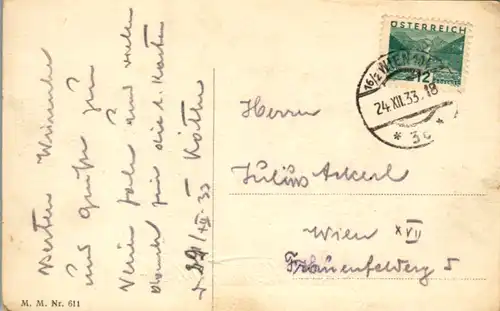 Besten Wünsche
und Grüße zum
Neuen Jahr und vielen
Dank für die l. Karten
Käthe
24/XII. 33
M. M. Nr. 611
ÖSTERREICH
12
GROSCHEN
16/2 WIEN
24.XII.33.18
* 3c *
Herrn
Julius Ackerl
Wien XVII
Frauenfelderg 5